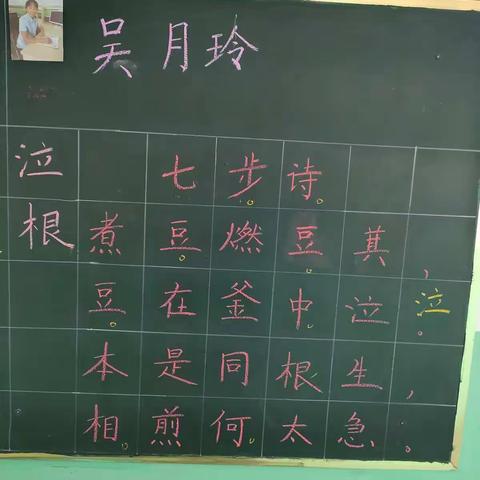 吴月玲
泣 七步诗
根 煮豆燃豆萁，
豆在釜中泣泣。
本是同根生，
相煎何太急。